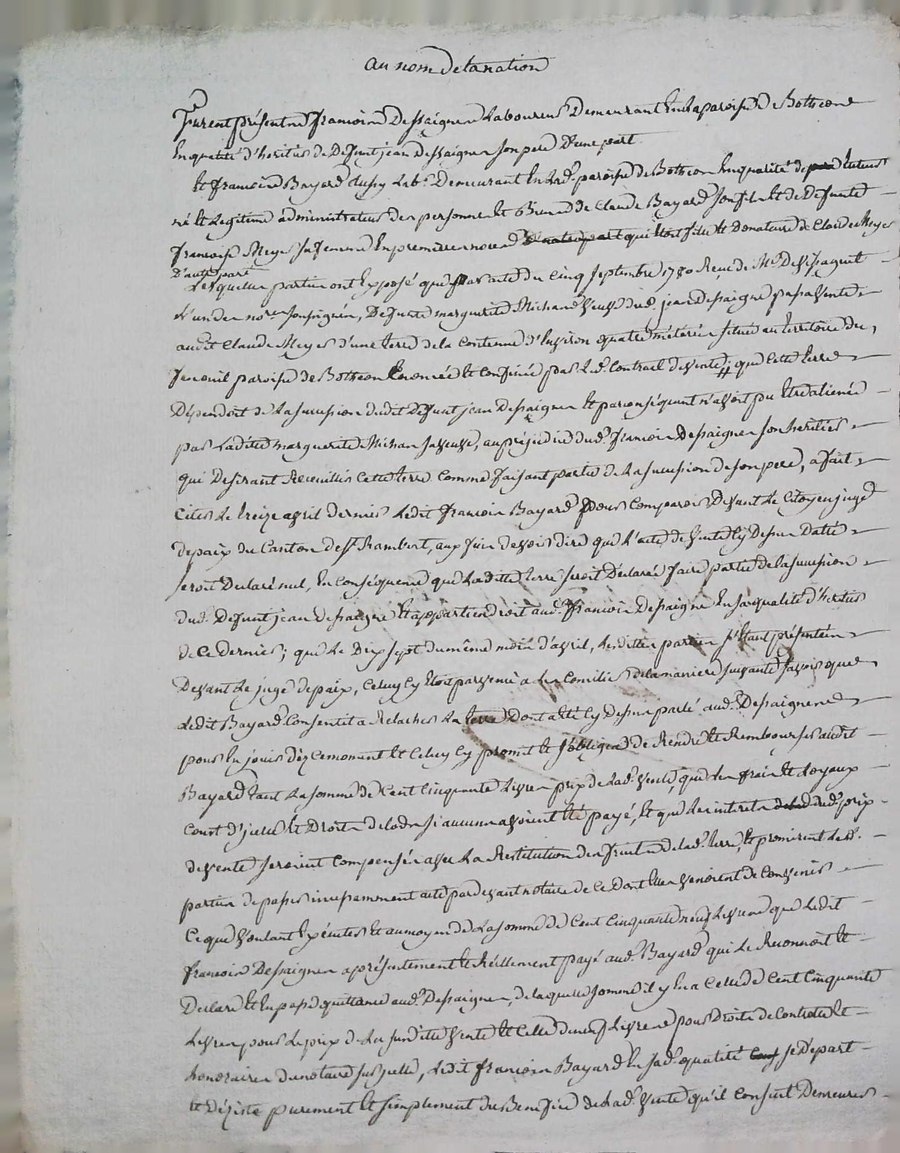 au nom de la nation
Furent présents françois Dessaignes Laboureur Demeurant En la paroisse de Bothéon
En qualité d'heritier de Défunt jean dessaigne son pere D'une part
Et françois Bayard aussy Lab.r Demeurant En lad.e paroisse de Bothéon En qualité de tuteur
né et Legitime administrateur des personne et Biens de Claude Bayard son fils et de Defunte
françoise Meyes sa femme En premieres noces qui Etoit fille et Donataire de Claude Meyes
D'autre part
Lesquelles parties ont Exposé que par acte du cinq septembre 1780 Reçu de M.e Dessagnes
L'un des no.res soussignés, Defunte marguerite Michan veuve dud. jean dessaigne passa vente
audit Claude Meyes d'une terre de la Contenue d'Environ quatre métérées située au territoire du
paroisse de Bothéon Enoncée et Confinée par led. Contract de vente, que Cette terre
Dépendoit de la succession dudit Défunt jean Dessaigne et par conséquent n'avoit pu Etre alienée
par Ladite marguerite Michan sa veuve, au préjudice dud. françois Dessaignes son heritier
qui Desirant Recueillir Cette terre Comme faisant partie de la succession de son pere, a fait
Citer Le treize avril dernier Ledit francois Bayard pour Comparoir Devant Le Citoyen juge
de paix du Canton de S.t Rambert, aux fins de voir dire que L'acte de vente Cy Dessus Datté
seroit Declaré nul, En conséquence que Ladite terre seroit Déclarée faire partie de la succession
dud. Défunt jean dessaigne Et appartiendroit aud. françois Dessaigne En sa qualité d'heritier
de Ce dernier; que Le Dix sept du même mois d'avril, Lesdites parties s'Etant présentées
Devant Le juge de paix, Celuy Cy Etoit parvenu a les Concilier de la maniere suivante savoir que
Ledit Bayard Consentit a Relacher La terre Dont a Eté Cy Dessus parlé aud. Dessaignes
pour En jouir dèz Ce moment et Celuy Cy promit et s'obligea de Rendre et Rembourser audit
Bayard tant La somme de Cent Cinquante Livres prix de lad. vente, que Les frais et Loyaux
Cout d'icelle et Droits de lods si aucuns avoient Eté payé, Et que Les interets dud. prix
de vente seroient Compensés avec La Restitution des fruits de lad. terre, Et promirent Lesd.
parties de passer incessamment acte par devant notaire de Ce dont Elles venoient de Convenir
Ce que voulant Exécuter Et au moyen de La somme de Cent Cinquante neuf Livres que Ledit
francois Dessaignes a présentement et Réellement payé aud. Bayard qui Le Reconnoit et
Declare Et En passe quittance aud. Dessaignes, de laquelle somme il y En a Celle de Cent Cinquante
Livres pour Le prix de La susditte vente Et Celle de neuf Livres pour Droits de Controle Et
honoraires du notaire sur Icelle, Ledit francois Bayard En sad. qualité se Départ
Et dèziste purement Et simplement du Benefice de lad. vente qu'il Consent Demeurer